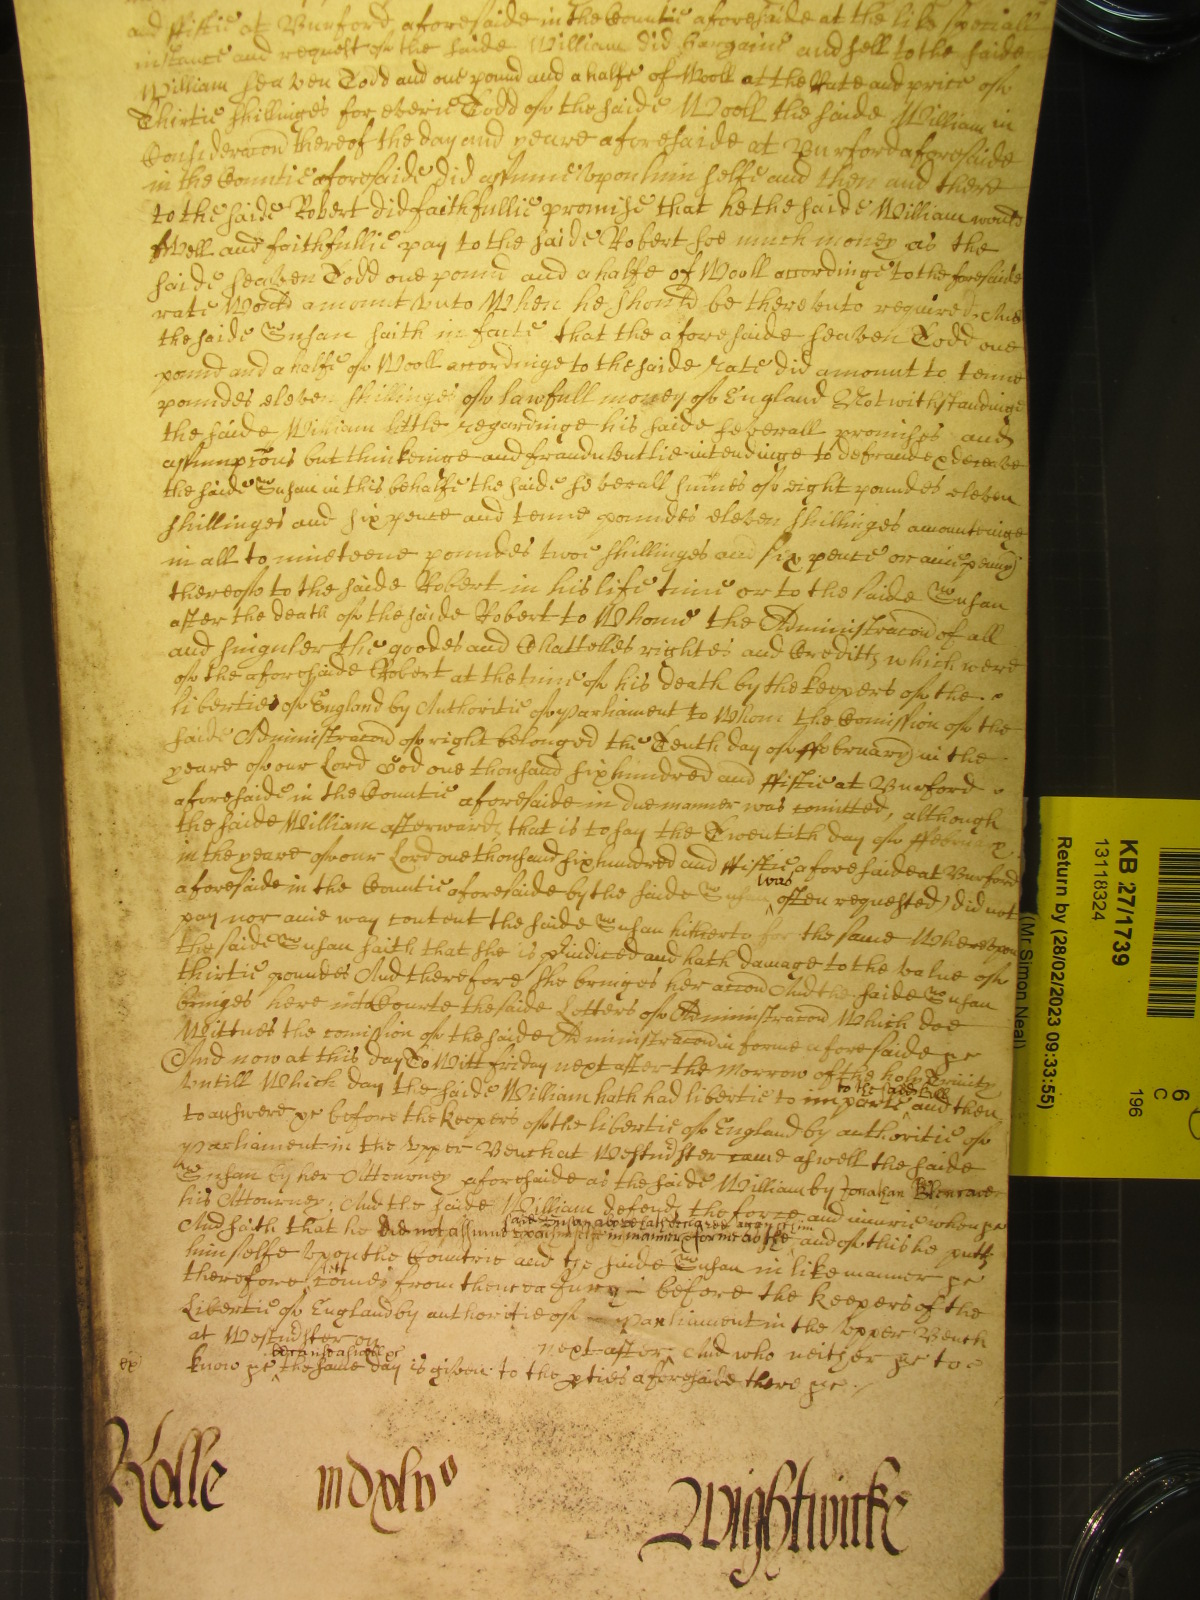 and ffiftie at Burford aforesaide in the Countie aforesaide at the like speciall
instance and request of the saide William did bargaine and sell to the saide
William seaven Todd and one pound and a halfe of Wooll at the Rate and price of
Thirtie shillinges for everie Todd of the saide Wooll the saide William in
Consideracon thereof the day and yeare aforesaide at Burford aforesaide
in the Countie aforesaide did assume upon him selfe and then and there
to the saide Robert did faithfullie promise that he the saide William would
Well and faithfullie pay to the saide Robert soe much money as the
saide seaven Todd one pound and a halfe of Wooll accordinge to the foresaide
rate Would amount unto When he should be thereunto required And
the saide Susan saith in facte that the aforesaide seaven Todd one
pound and a halfe of Wooll accordinge to the saide rate did amount to tenne
poundes eleven shillinges of lawfull money of England Notwithstandinge
the saide William little regardinge his saide severall promises and
assumpcons but thinkeinge and fraudulentlie intendinge to defraude & deceave
the saide Susan in this behalfe the saide severall summes of eight poundes eleven
shillinges and six pence and tenne poundes eleven shillinges amountinge
in all to nineteene poundes twoe shillinges and six pence or anie penny
thereof to the saide Robert in his life time or to the saide Susan
after the death of the saide Robert to Whome the Administracon of all
and singuler the goodes and Chattelles rightes and Creditts which were
of the aforesaide Robert at the time of his death by the keepers of the
liberties of England by Authoritie of Parliament to Whom the Comission of the
saide Administracon of right belonged the Tenth day of ffebruary in the
yeare of our Lord God one thousand six hundred and ffiftie at Burford
aforesaide in the Countie aforesaide in due manner was comitted, although
the saide William afterwards that is to say the Twentith day of ffebruary
in the yeare of our Lord one thousand six hundred and ffiftie aforesaide at Burford
aforesaide in the Countie aforesaide by the saide Susan was often requested) did not
pay nor anie way content the saide Susan hitherto for the same Whereupon
the saide Susan saith that she is p'iudiced and hath damage to the value of
thirtie poundes And therefore she bringes her accon And the saide Susan
bringes here into Courte the saide Letters of Administracon Which doe
Wittnes the comission of the saide Administracon in forme aforesaide &c
And now at this day To Witt friday next after the morrow of the holy Trinity
untill Which day the saide William hath had libertie to imparle to the saide bill and then
to answere &c before the keepers of the libertie of England by authoritie of
Parliament in the upper Bench at Westm'ster came aswell the saide
Susan by her Attourney aforesaide as the saide William by Jonathan
his Attourney, And the saide William defends the force and iniurie when &c
And saith that he did not assume upon himselfe in manner & forme as the said Susan above hath declared against him and of this he putts
himselfe upon the Countrie and the saide Susan in like manner &c
therefore lett comes from thence a Jury before the keepers of the
Libertie of England by authoritie of Parliament in the upper Bench
at Westm'ster on next after And who neither &c to
know &c because aswell &c the same day is given to the p'ties aforesaide there &c
Rolle mdxlv° Wightwicke
KB 27/1739
13118324
Return by (28/02/2023 09:33:55)
(Mr Simon Neal)
6
C
196